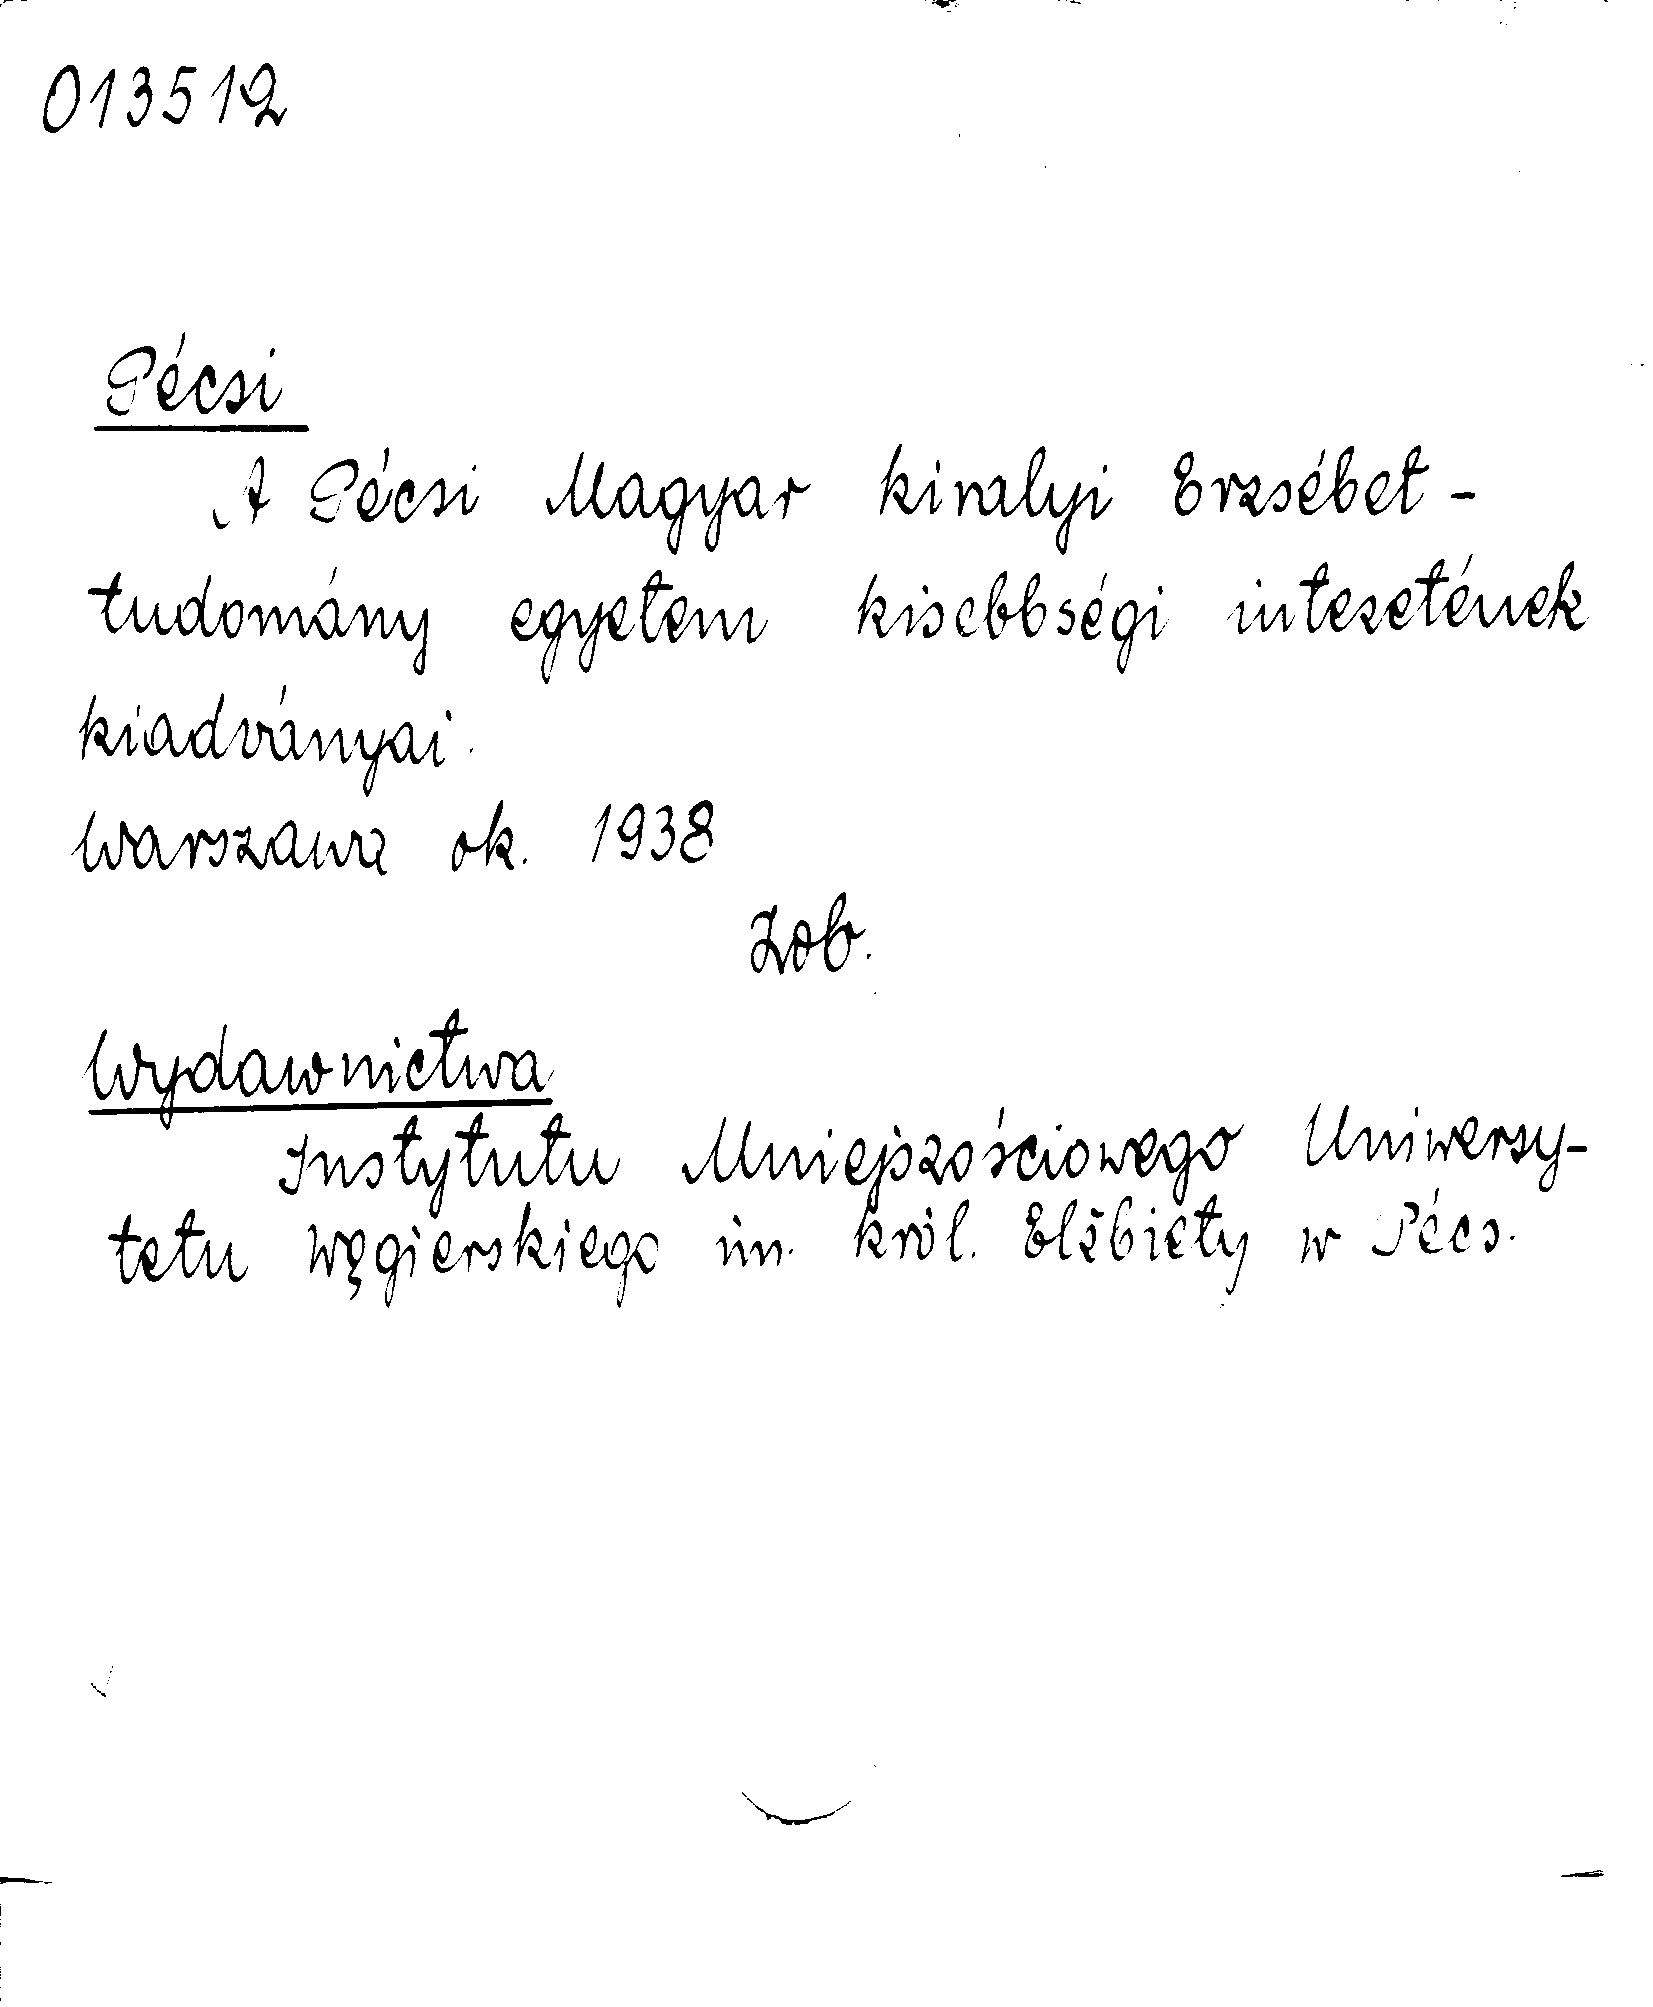 013512
Pécsi
A Pécsi Magyar kiralyi Erzsébet -
tudomány egyetem kisebbségi intezetének
kiadványai.
Warszawa ok. 1938
Zob.
Wydawnictwa
Instytutu Mniejszościowego Uniwersy-
tetu Węgierskiego im. król. Elżbiety w Pécs.